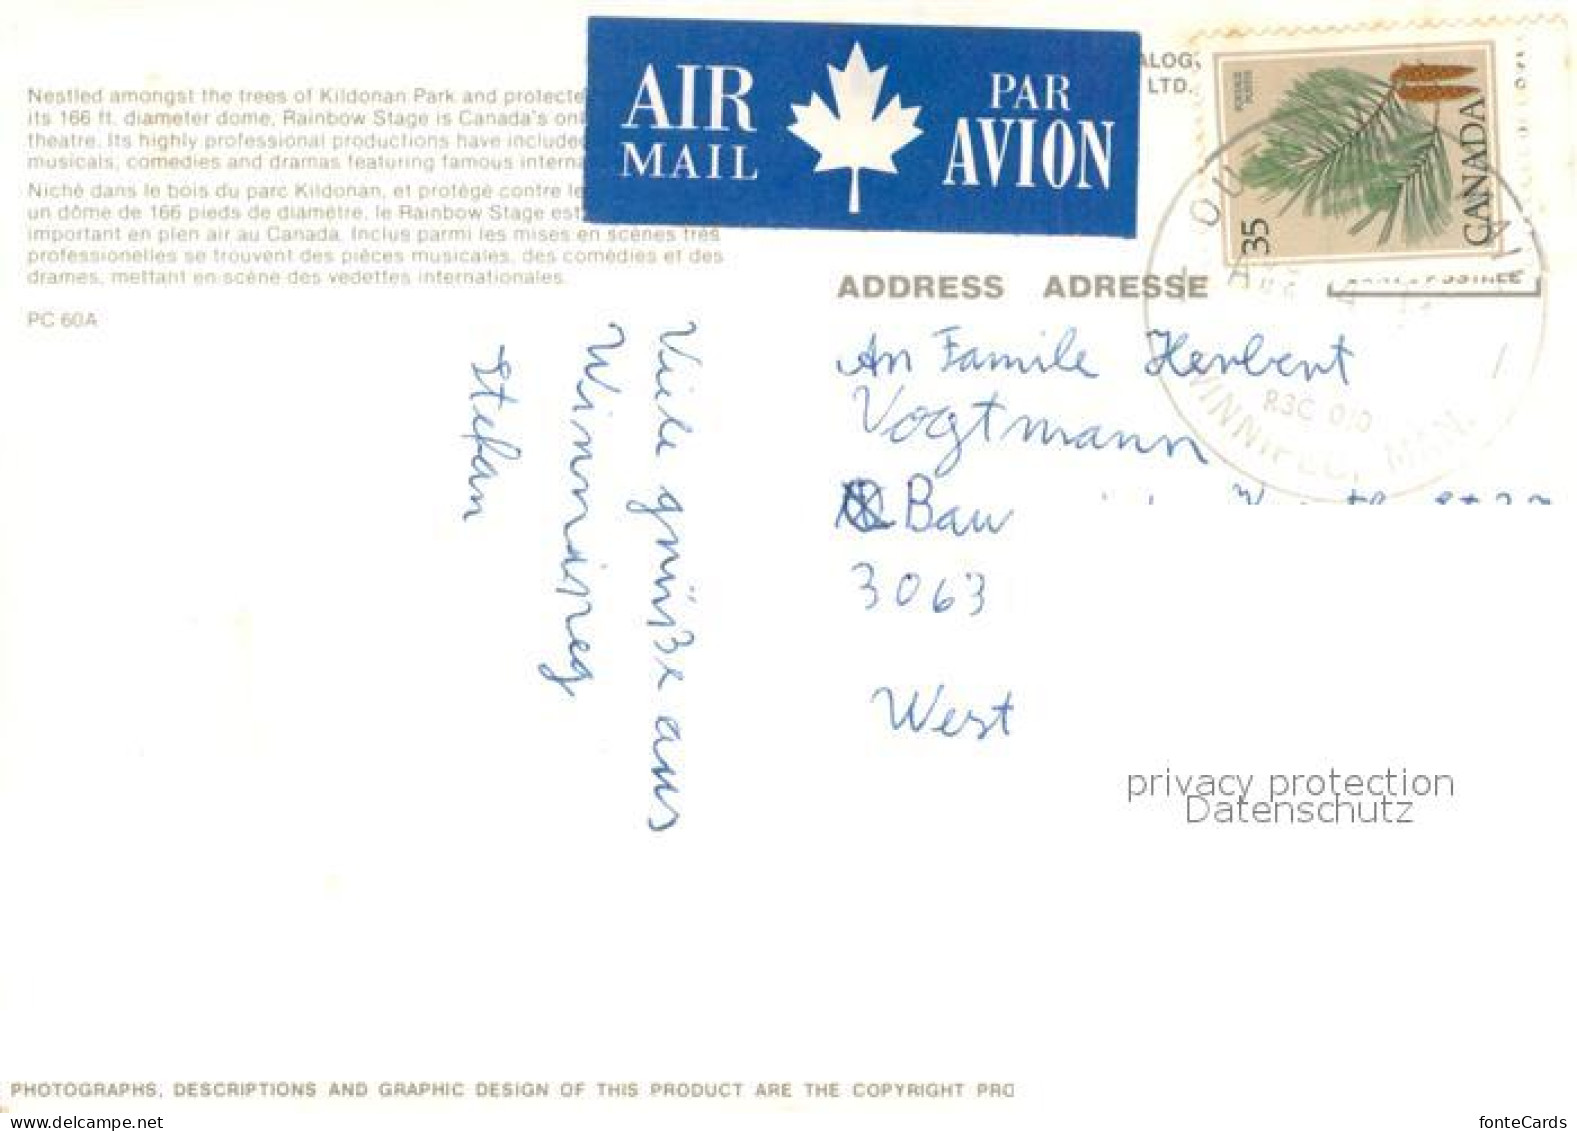 Nestled amongst the trees of Kildonan Park and protecte
its 166 ft. diameter dome, Rainbow Stage is Canada's onl
theatre. Its highly professional productions have included
musicals, comedies and dramas featuring famous interna
Niché dans le bois du parc Kildonan, et protégé contre le
un dôme de 166 pieds de diamètre, le Rainbow Stage est
important en plen air au Canada. Inclus parmi les mises en scènes très
professionelles se trouvent des pièces musicales, des comédies et des
drames, mettant en scène des vedettes internationales.
PC 60A
AIR MAIL
PAR AVION
ALOG.
LTD.
POSTAGE POSTES
35
CANADA
R3C 0J0
WINNIPEG, MAN.
ADDRESS ADRESSE
An Familie Herbert
Vogtmann
Bau
3063
West
Viele grüße aus
Winnipeg
Stefan
privacy protection
Datenschutz
PHOTOGRAPHS, DESCRIPTIONS AND GRAPHIC DESIGN OF THIS PRODUCT ARE THE COPYRIGHT PRO
www.delcampe.net
fonteCards